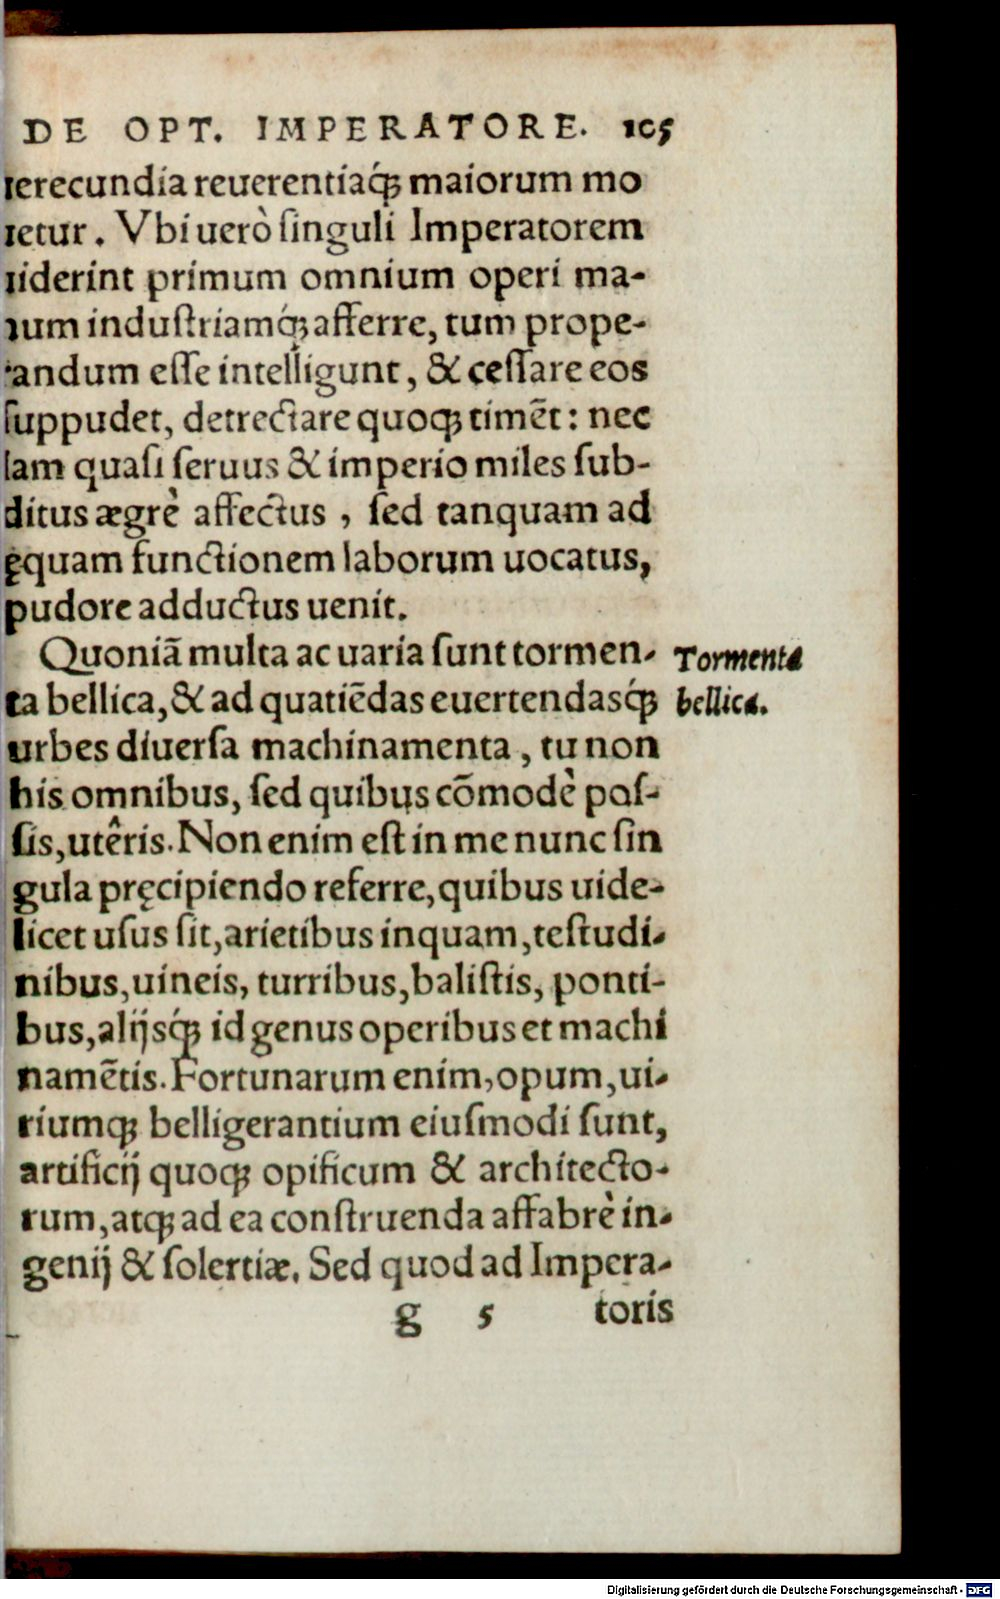 DE OPT. IMPERATORE. 105
uerecundia reuerentiaq́ꝫ maiorum mo
uetur. Vbi uerò ſinguli Imperatorem
uiderint primum omnium operi ma-
num induſtriamq́ꝫ afferre, tum prope-
randum eſſe intelligunt, & ceſſare eos
ſuppudet, detrectare quoqꝫ timēt: nec
iam quaſi ſeruus & imperio miles ſub-
ditus ægrè affectus, ſed tanquam ad
ęquam functionem laborum uocatus,
pudore adductus uenit.
Quoniā multa ac uaria ſunt tormen-
ta bellica, & ad quatiēdas euertendasq́ꝫ
urbes diuerſa machinamenta, tu non
his omnibus, ſed quibus cōmodè poſ-
ſis, utêris. Non enim eſt in me nunc ſin
gula pręcipiendo referre, quibus uide-
licet uſus ſit, arietibus inquam, teſtudi-
nibus, uineis, turribus, baliſtis, ponti-
bus, alijsq́ꝫ id genus operibus et machi
namētis. Fortunarum enim, opum, ui-
riumqꝫ belligerantium eiuſmodi ſunt,
artificij quoqꝫ opificum & architecto-
rum, atqꝫ ad ea conſtruenda affabrè in-
genij & ſolertiæ. Sed quod ad Impera-
g 5 toris
Tormenta
bellica.
Digitalisierung gefördert durch die Deutsche Forschungsgemeinschaft - DFG